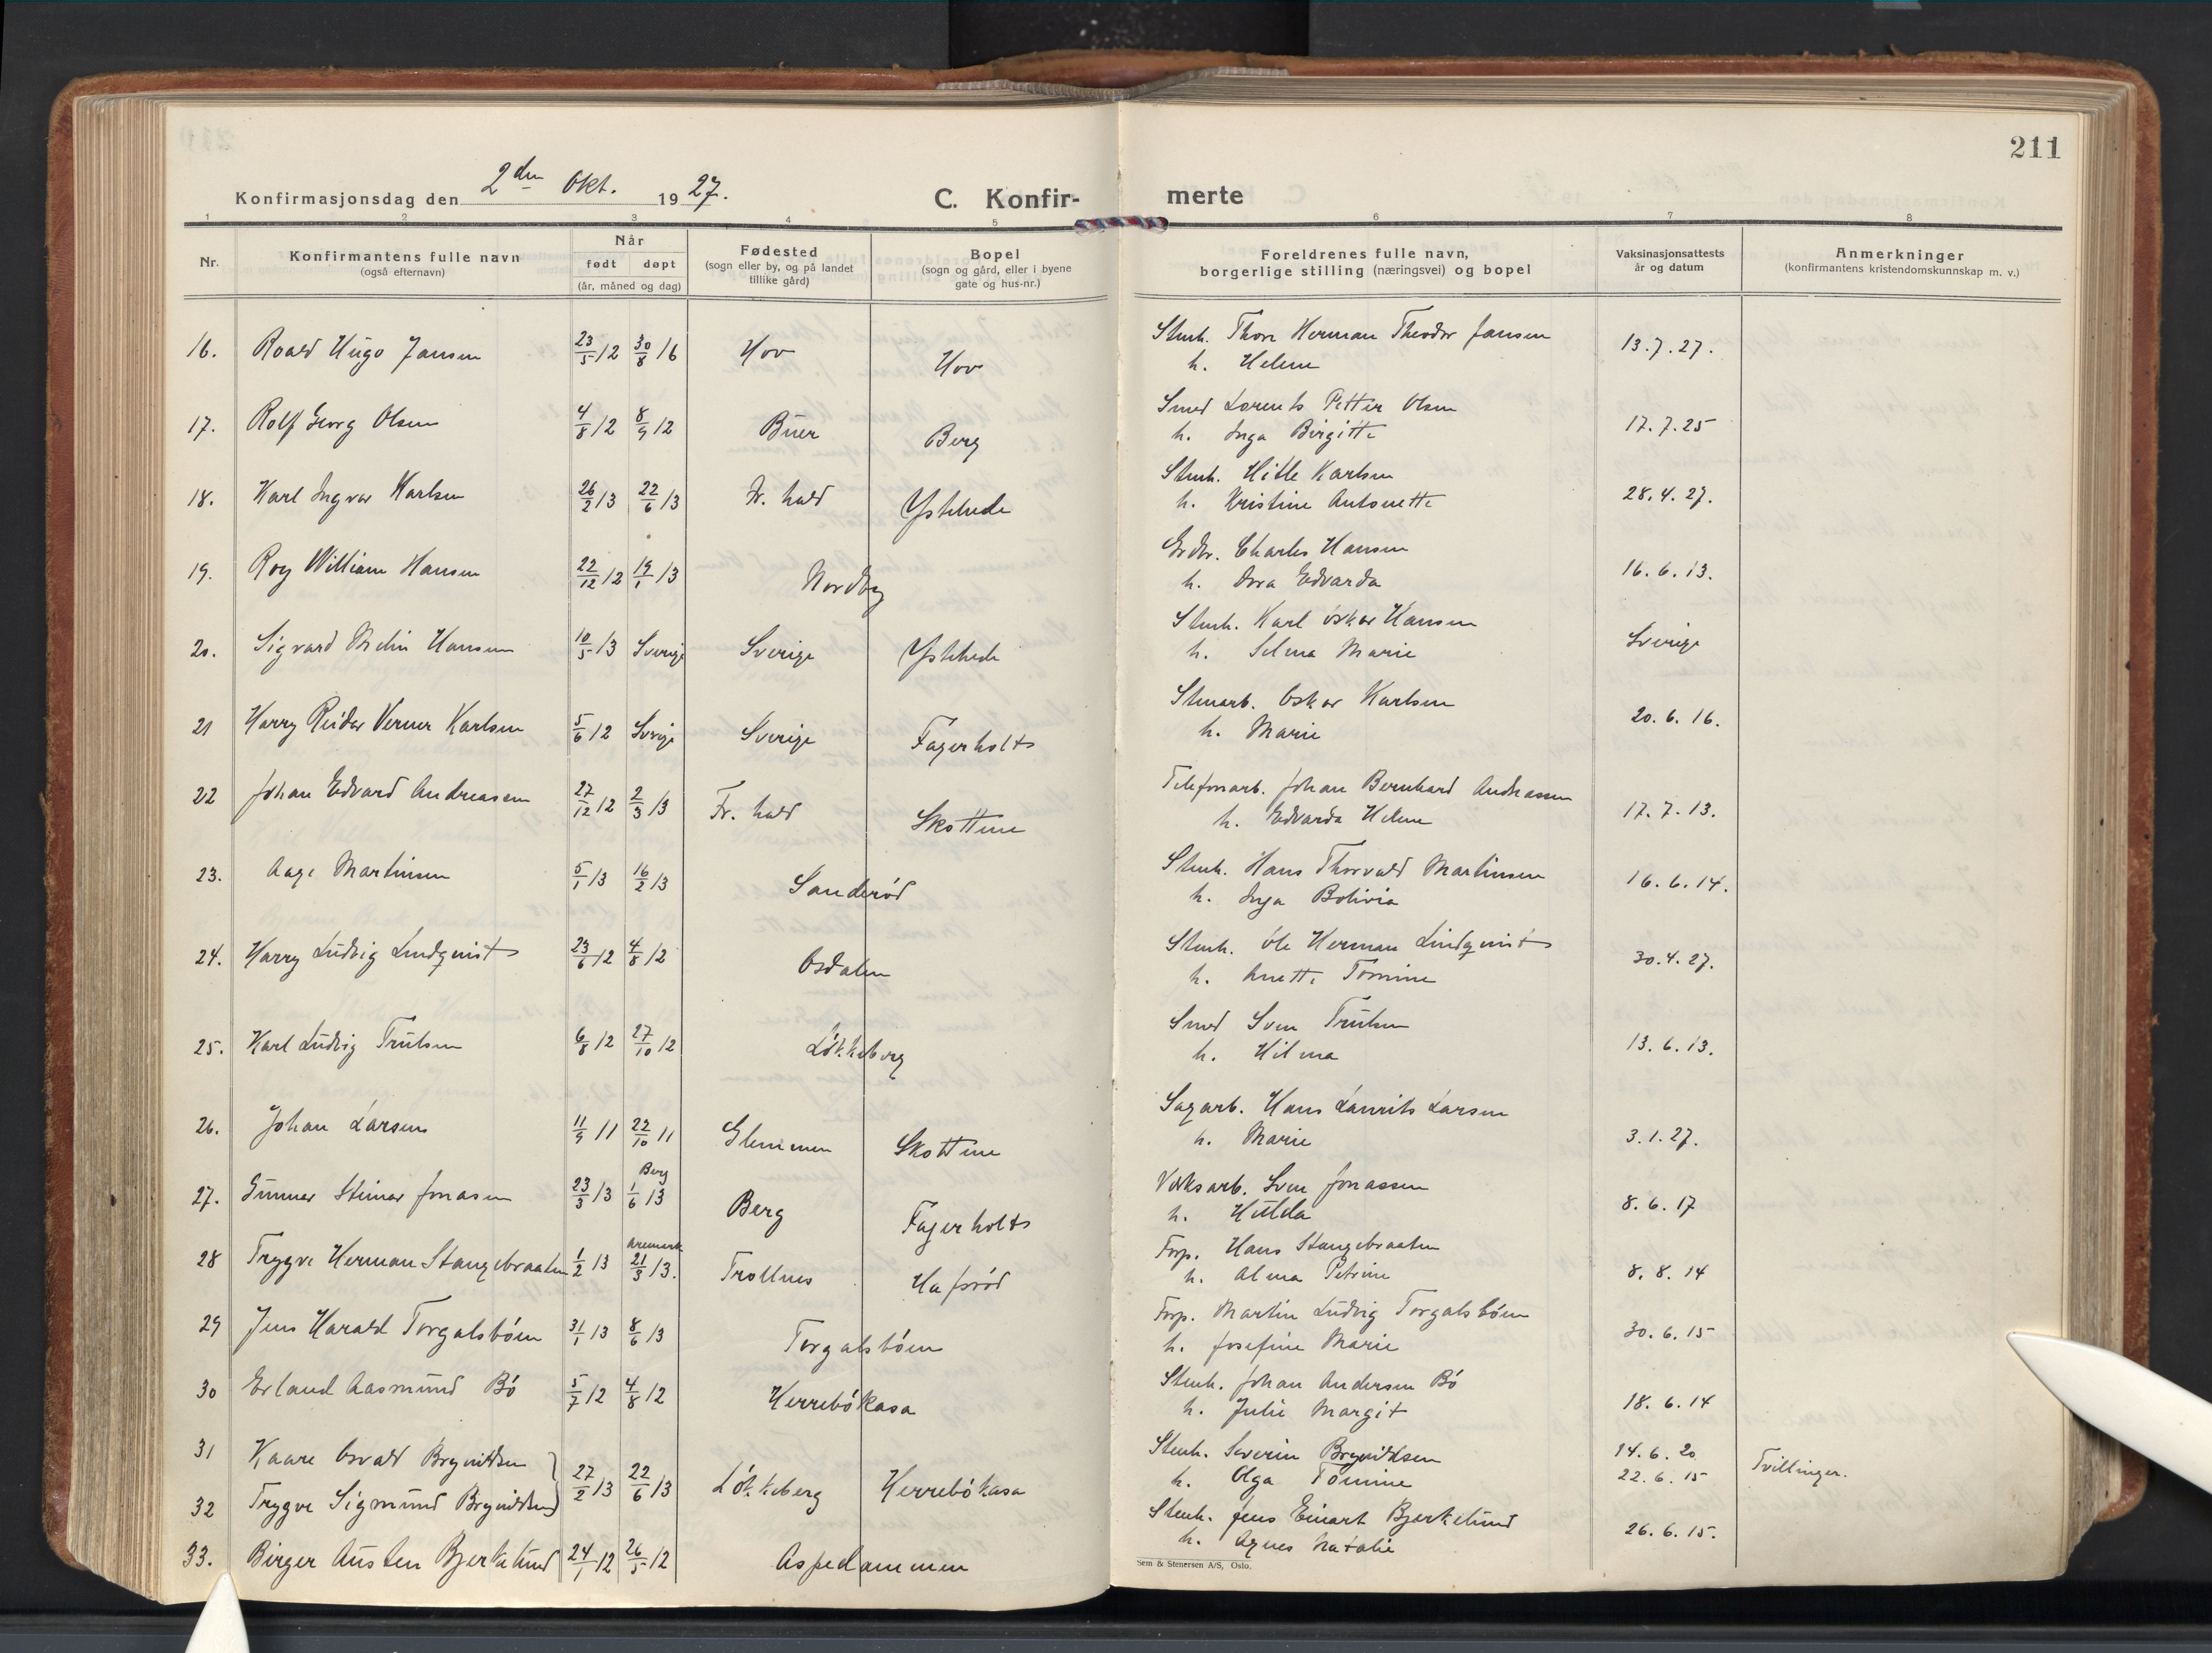 211
Konfirmasjonsdag den 2den Okt. 1927.
C. Konfir-
merte
1 2 3 4 5 6 7 8
Nr.
Konfirmantens fulle navn
(også efternavn)
Når
født døpt
(år, måned og dag)
Fødested
(sogn eller by, og på landet
tillike gård)
Bopel
(sogn og gård, eller i byene
gate og hus-nr.)
Foreldrenes fulle navn,
borgerlige stilling (næringsvei) og bopel
Vaksinasjonsattests
år og datum
Anmerkninger
(konfirmantens kristendomskunnskap m. v.)
16. Roald Hugo Jansen 23/5 12 30/8 16 Hov Hov Stenh. Thore Herman Theodor Jansen 13.7.27.
h. Helene
17. Rolf Georg Olsen 4/8 12 8/9 12 Buer Berg Smed Lorents Petter Olsen 17.7.25
h. Inga Birgitte
18. Karl Ingvar Karlsen 26/2 13 22/6 13 Fr. hald Ystehede Stenh. Karlsen 28.4.27.
h. Kristine Antonette
19. Roy William Hansen 22/12 12 19/1 13 Nordby Grdbr. Charles Hansen 16.6.13.
h. Dora Edvarda
20. Sigvard Melin Hansen 10/5 13 Sverige Sverige Ystehede Stenh. Karl Oskar Hansen Sverige
h. Selma Marie
21 Harry Reidar Verner Karlsen 5/6 12 Sverige Sverige Fagerholt Stenarb. Oskar Karlsen 20.6.16.
h. Marie
22 Johan Edvard Andreasen 27/12 12 2/3 13 Fr. hald Skottene Telefonarb. Johan Bernhard Andreassen 17.7.13.
h. Edvarda Helene
23. Aage Martinsen 5/1 13 16/2 13 Sanderød Stenh. Hans Thorvald Martinsen 16.6.14.
h. Inga Bolivia
24. Harry Ludvig Lindqvist 23/6 12 4/8 12 Osdalen Stenh. Ole Herman Lindqvist 30.4.27.
h. Anette Tomine
25. Karl Ludvig Trulsen 6/8 12 27/10 12 Løkkeberg Smed Sven Trulsen 13.6.13.
h. Hilma
26. Johan Larsen 11/9 11 22/10 11 Glemmen Skottene Sagarb. Hans Laurits Larsen 3.1.27.
h. Marie
27. Gunnar Steinar Jonasen 23/3 13 Berg 1/6 13 Berg Fagerholt Verksarb. Sven Jonassen 8.6.17
h. Hulda
28 Trygve Herman Stangebraaten 1/2 13 Aremark 21/3 13. Trollnes Hafsrød Forp. Hans Stangebraaten 8.8.14
h. Alma Petrine
29 Jens Harald Torgalsbøen 31/1 13 8/6 13 Torgalsbøen Forp. Martin Ludvig Torgalsbøen 30.6.15
h. Josefine Marie
30 Erland Aasmund Bø 5/7 12 4/8 12 Herrebøkasa Stenh. Johan Andersen Bø 18.6.14
h. Julie Margit
31 Kaare Osvald Brynildsen 27/2 13 22/6 13 Løkkeberg Herrebøkasa Stenh. Severin Brynildsen 14.6.20 Tvillinger.
32 Trygve Sigmund Brynildsen h. Olga Tomine 22.6.15
33. Birger Austen Bjerkelund 24/1 12 26/5 12 Aspedammen Stenh. Jens Einart Bjerkelund 26.6.15.
h. Agnes Natalie
Sem & Stenersen A/S, Oslo.